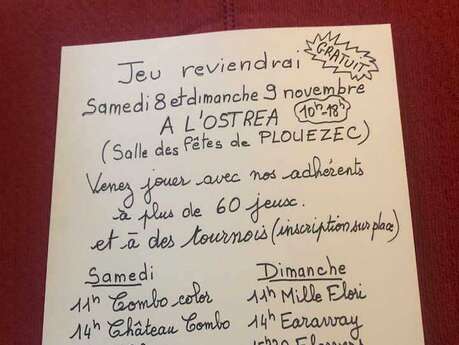 Jeu reviendrai
GRATUIT
Samedi 8 et dimanche 9 novembre
A L'OSTREA
10h-18h
(Salle des fêtes de PLOUEZEC)
Venez jouer avec nos adhérents
à plus de 60 jeux.
et à des tournois (inscription sur place)
Samedi
11h Combo color
14h Château Combo
Dimanche
11h Mille Fiori
14h Earaway
15h30